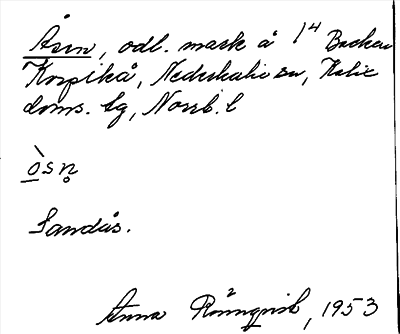 Åsen, odl. mark å 1⁴ Backen
Korpikå, Nederkalix sn, Kalix
doms. lg, Norrb. l
òsn̥
Sandås.
Anna Rönnqvist, 1953